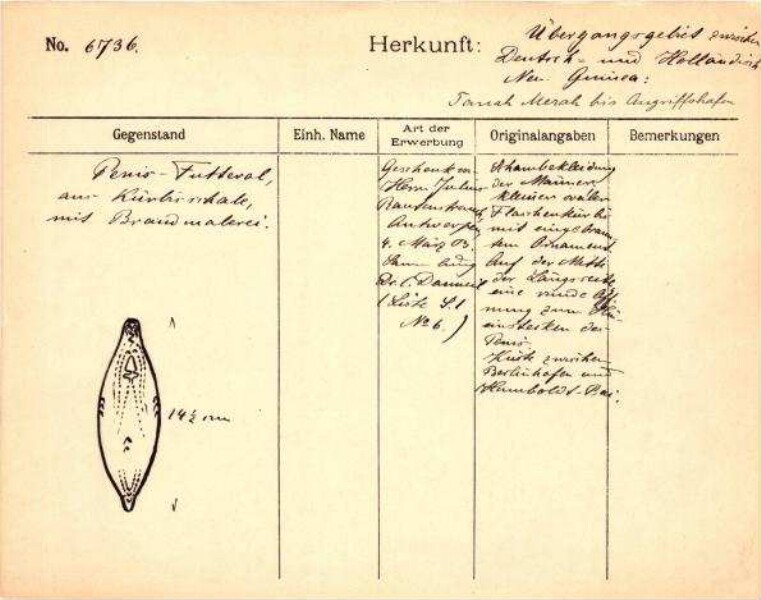 No. 6736.
Herkunft: Übergangsgebiet zwischen
Deutsch- und Holländisch
Neu Guinea:
Tanah Merah bis Angriffshafen
Gegenstand
Einh. Name
Art der Erwerbung
Originalangaben
Bemerkungen
Penis-Futteral,
aus Kürbisschale,
mit Brandmalerei.
14½ cm
Geschenk von
Herrn Julius
Rautenstrauch,
Antwerpen,
4. März 03.
Sammlung
Dr.
(Liste S. 1
No 6.)
Schambekleidung
der Männer
kleiner ovaler
Flaschenkürbis
mit eingebrann-
tem Ornament
Auf der Mitte
der Längsseite
eine runde Öff-
nung zum Hin-
einstecken des
Penis.
Küste zwischen
Berlinhafen und
Humboldt-Bai.